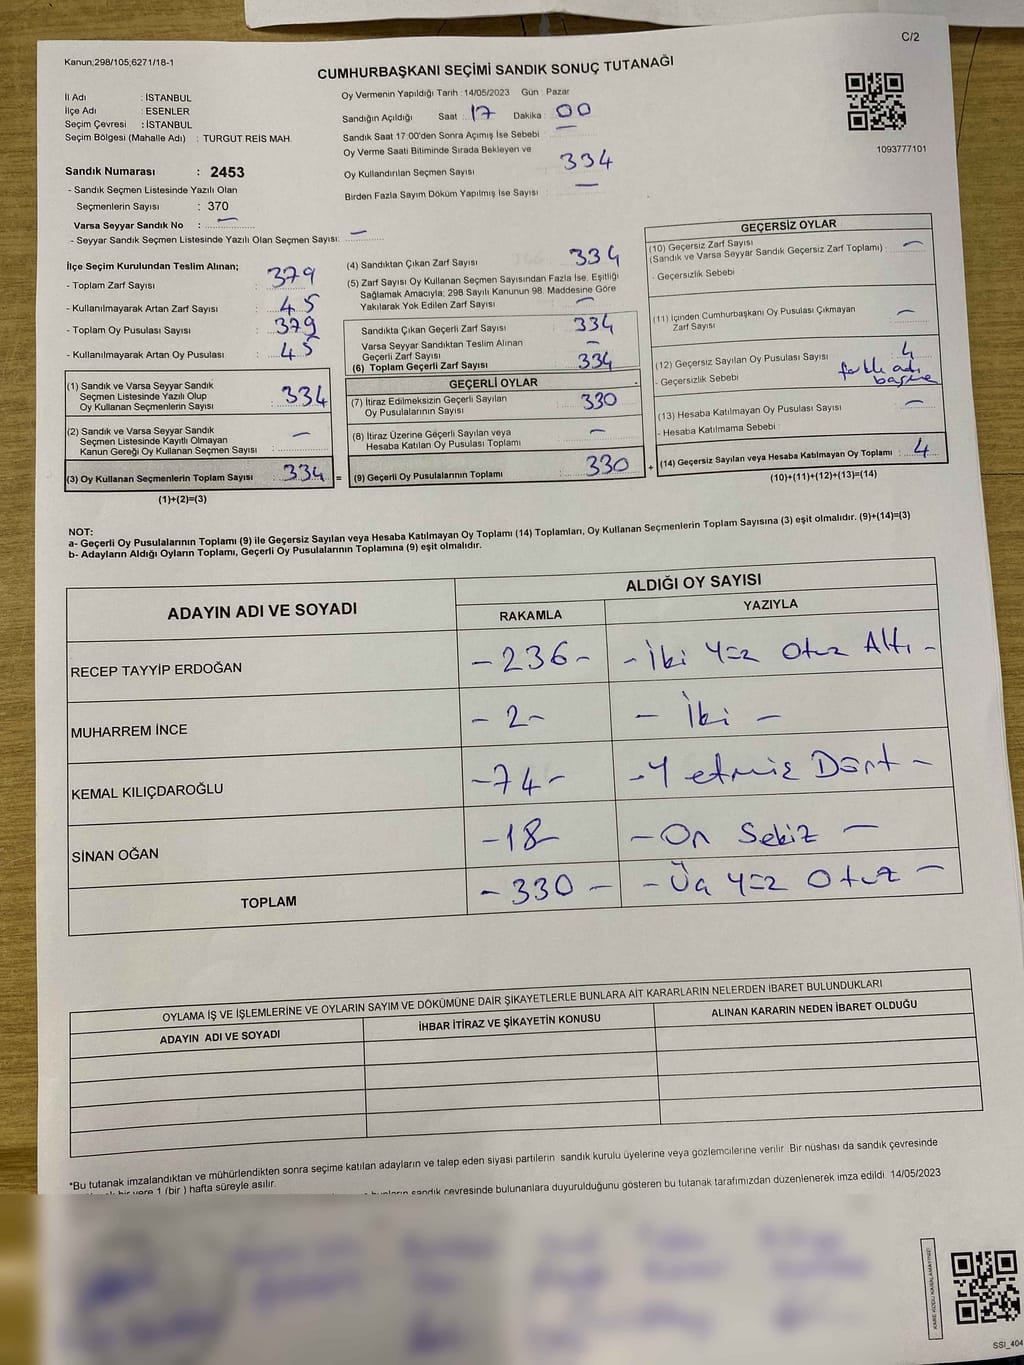 C/2
Kanun;298/105;6271/18-1
CUMHURBAŞKANI SEÇİMİ SANDIK SONUÇ TUTANAĞI
İl Adı : İSTANBUL
İlçe Adı : ESENLER
Seçim Çevresi : İSTANBUL
Seçim Bölgesi (Mahalle Adı) : TURGUT REİS MAH.
Oy Vermenin Yapıldığı Tarih : 14/05/2023 Gün : Pazar
Sandığın Açıldığı Saat : 17 Dakika : 00
Sandık Saat 17:00'den Sonra Açımış İse Sebebi : —
Oy Verme Saati Bitiminde Sırada Bekleyen ve
Oy Kullandırılan Seçmen Sayısı : 334
Birden Fazla Sayım Döküm Yapılmış İse Sayısı : —
1093777101
Sandık Numarası : 2453
- Sandık Seçmen Listesinde Yazılı Olan
Seçmenlerin Sayısı : 370
Varsa Seyyar Sandık No : —
- Seyyar Sandık Seçmen Listesinde Yazılı Olan Seçmen Sayısı: —
İlçe Seçim Kurulundan Teslim Alınan;
- Toplam Zarf Sayısı : 379
- Kullanılmayarak Artan Zarf Sayısı : 45
- Toplam Oy Pusulası Sayısı : 379
- Kullanılmayarak Artan Oy Pusulası : 45
(1) Sandık ve Varsa Seyyar Sandık
Seçmen Listesinde Yazılı Olup
Oy Kullanan Seçmenlerin Sayısı : 334
(2) Sandık ve Varsa Seyyar Sandık
Seçmen Listesinde Kayıtlı Olmayan
Kanun Gereği Oy Kullanan Seçmen Sayısı : —
(3) Oy Kullanan Seçmenlerin Toplam Sayısı : 334 =
(1)+(2)=(3)
(4) Sandıktan Çıkan Zarf Sayısı : 334
(5) Zarf Sayısı Oy Kullanan Seçmen Sayısından Fazla İse, Eşitliği
Sağlamak Amacıyla; 298 Sayılı Kanunun 98. Maddesine Göre
Yakılarak Yok Edilen Zarf Sayısı : —
Sandıkta Çıkan Geçerli Zarf Sayısı : 334
Varsa Seyyar Sandıktan Teslim Alınan
Geçerli Zarf Sayısı : —
(6) Toplam Geçerli Zarf Sayısı : 334
GEÇERLİ OYLAR
(7) İtiraz Edilmeksizin Geçerli Sayılan
Oy Pusulalarının Sayısı : 330
(8) İtiraz Üzerine Geçerli Sayılan veya
Hesaba Katılan Oy Pusulası Toplamı : —
(9) Geçerli Oy Pusulalarının Toplamı : 330 +
GEÇERSİZ OYLAR
(10) Geçersiz Zarf Sayısı
(Sandık ve Varsa Seyyar Sandık Geçersiz Zarf Toplamı) : —
- Geçersizlik Sebebi
(11) İçinden Cumhurbaşkanı Oy Pusulası Çıkmayan
Zarf Sayısı : —
(12) Geçersiz Sayılan Oy Pusulası Sayısı : 4
- Geçersizlik Sebebi
(13) Hesaba Katılmayan Oy Pusulası Sayısı : —
- Hesaba Katılmama Sebebi :
(14) Geçersiz Sayılan veya Hesaba Katılmayan Oy Toplamı : 4
(10)+(11)+(12)+(13)=(14)
NOT:
a- Geçerli Oy Pusulalarının Toplamı (9) ile Geçersiz Sayılan veya Hesaba Katılmayan Oy Toplamı (14) Toplamları, Oy Kullanan Seçmenlerin Toplam Sayısına (3) eşit olmalıdır. (9)+(14)=(3)
b- Adayların Aldığı Oyların Toplamı, Geçerli Oy Pusulalarının Toplamına (9) eşit olmalıdır.
ADAYIN ADI VE SOYADI
ALDIĞI OY SAYISI
RAKAMLA YAZIYLA
RECEP TAYYİP ERDOĞAN - 236 - - İki Yüz Otuz Altı -
MUHARREM İNCE - 2 - - İki -
KEMAL KILIÇDAROĞLU - 74 - - Yetmiş Dört -
SİNAN OĞAN - 18 - - On Sekiz -
TOPLAM - 330 - - Üç Yüz Otuz -
OYLAMA İŞ VE İŞLEMLERİNE VE OYLARIN SAYIM VE DÖKÜMÜNE DAİR ŞİKAYETLERLE BUNLARA AİT KARARLARIN NELERDEN İBARET BULUNDUKLARI
ADAYIN ADI VE SOYADI İHBAR İTİRAZ VE ŞİKAYETİN KONUSU ALINAN KARARIN NEDEN İBARET OLDUĞU
*Bu tutanak imzalandıktan ve mühürlendikten sonra seçime katılan adayların ve talep eden siyasi partilerin sandık kurulu üyelerine veya gözlemcilerine verilir. Bir nüshası da sandık çevresinde
bir yere 1 (bir ) hafta süreyle asılır.
sandık çevresinde bulunanlara duyurulduğunu gösteren bu tutanak tarafımızdan düzenlenerek imza edildi. 14/05/2023
SSI_404